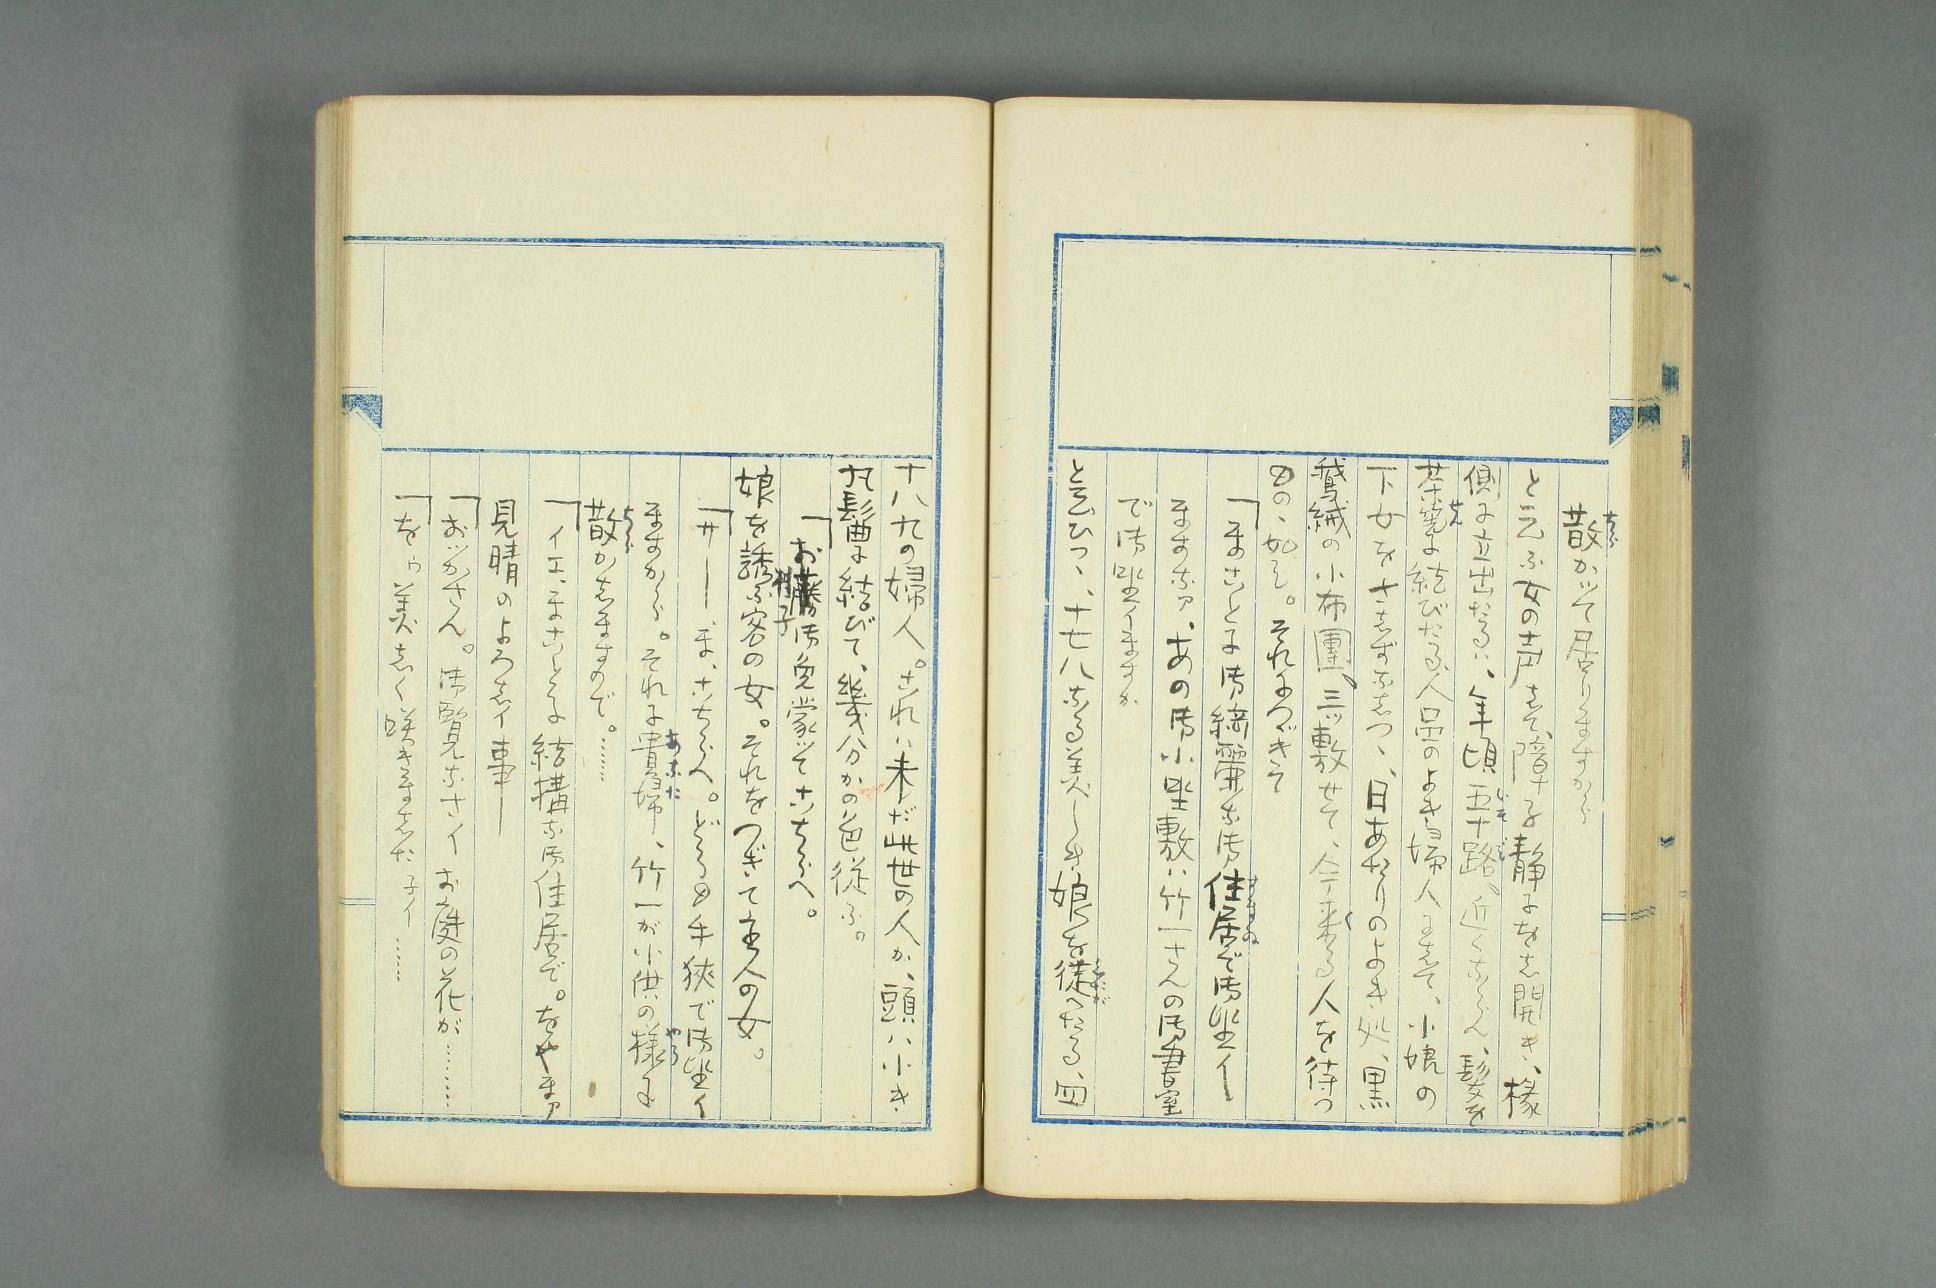 散かつて居りますから
と云ふ女の声して、障子静子をし開き、椽
側に立出たるハ、年頃五十路、近くならん、髪を
茶筅に結びたる、人品のよき婦人にして、小娘の
下女をさしずなしつ、日あたりのよき処、黒
鵞絨の小布團、三ッ敷せて、今来る人を待つ
もの、如し。それにつゞきて
「まことに御綺麗な御住居で御坐イ
ますなァ、あの御小坐敷ハ竹一さんの御書室
で御坐イますか
と云ひつゝ、十七八なる美しき娘を従へたる、四
十八九の婦人。これハ未だ此世の人か、頭ハ小き
丸髷に結びて、幾分かの色従ふ。
「お藤御免蒙ツてこちらへ。
娘を誘ふ客の女。それをつぎて主人の女。
「サー、ま、こちらへ。どうも手狭で御坐イ
ますから。それに貴婦、竹一が小供の様に
散かしますので。……
「イエ、まことに結構な御住居で。をやまァ
見晴のよろしイ事ー
「おツかさん。御覧なさイお庭の花が………
「をゥ美しく咲きました子イ……